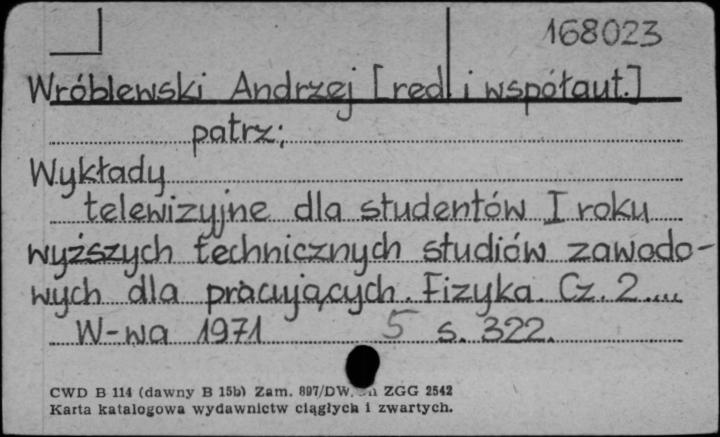 168023
Wróblewski Andrzej [red. i współaut.]
patrz;
Wykłady
telewizyjne dla studentów I roku
wyższych technicznych studiów zawodo-
wych dla pracujących. Fizyka. Cz. 2....
W-wa 1971 5 s. 322.
CWD B 114 (dawny B 15b) Zam. 897/DW. ZGG 2542
Karta katalogowa wydawnictw ciągłych i zwartych.